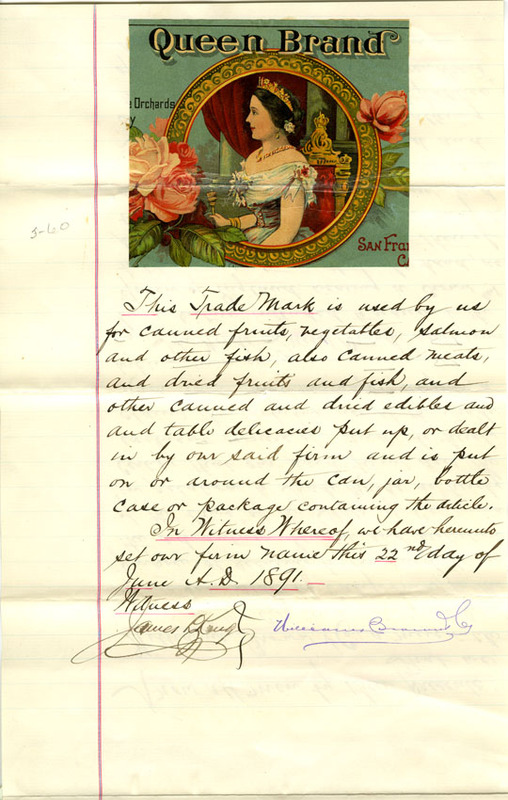 Queen Brand
Orchards
San Fra
3-60
This Trade Mark is used by us
for canned fruits, vegetables, salmon
and other fish, also canned meats,
and dried fruits and fish, and
other canned and dried edibles and
and table delicacies put up, or dealt
in by our said firm and is put
on or around the can, jar, bottle
case or package containing the article.
In Witness Whereof, we have hereunto
set our firm name this 22nd day of
June A.D. 1891.
Witness
James